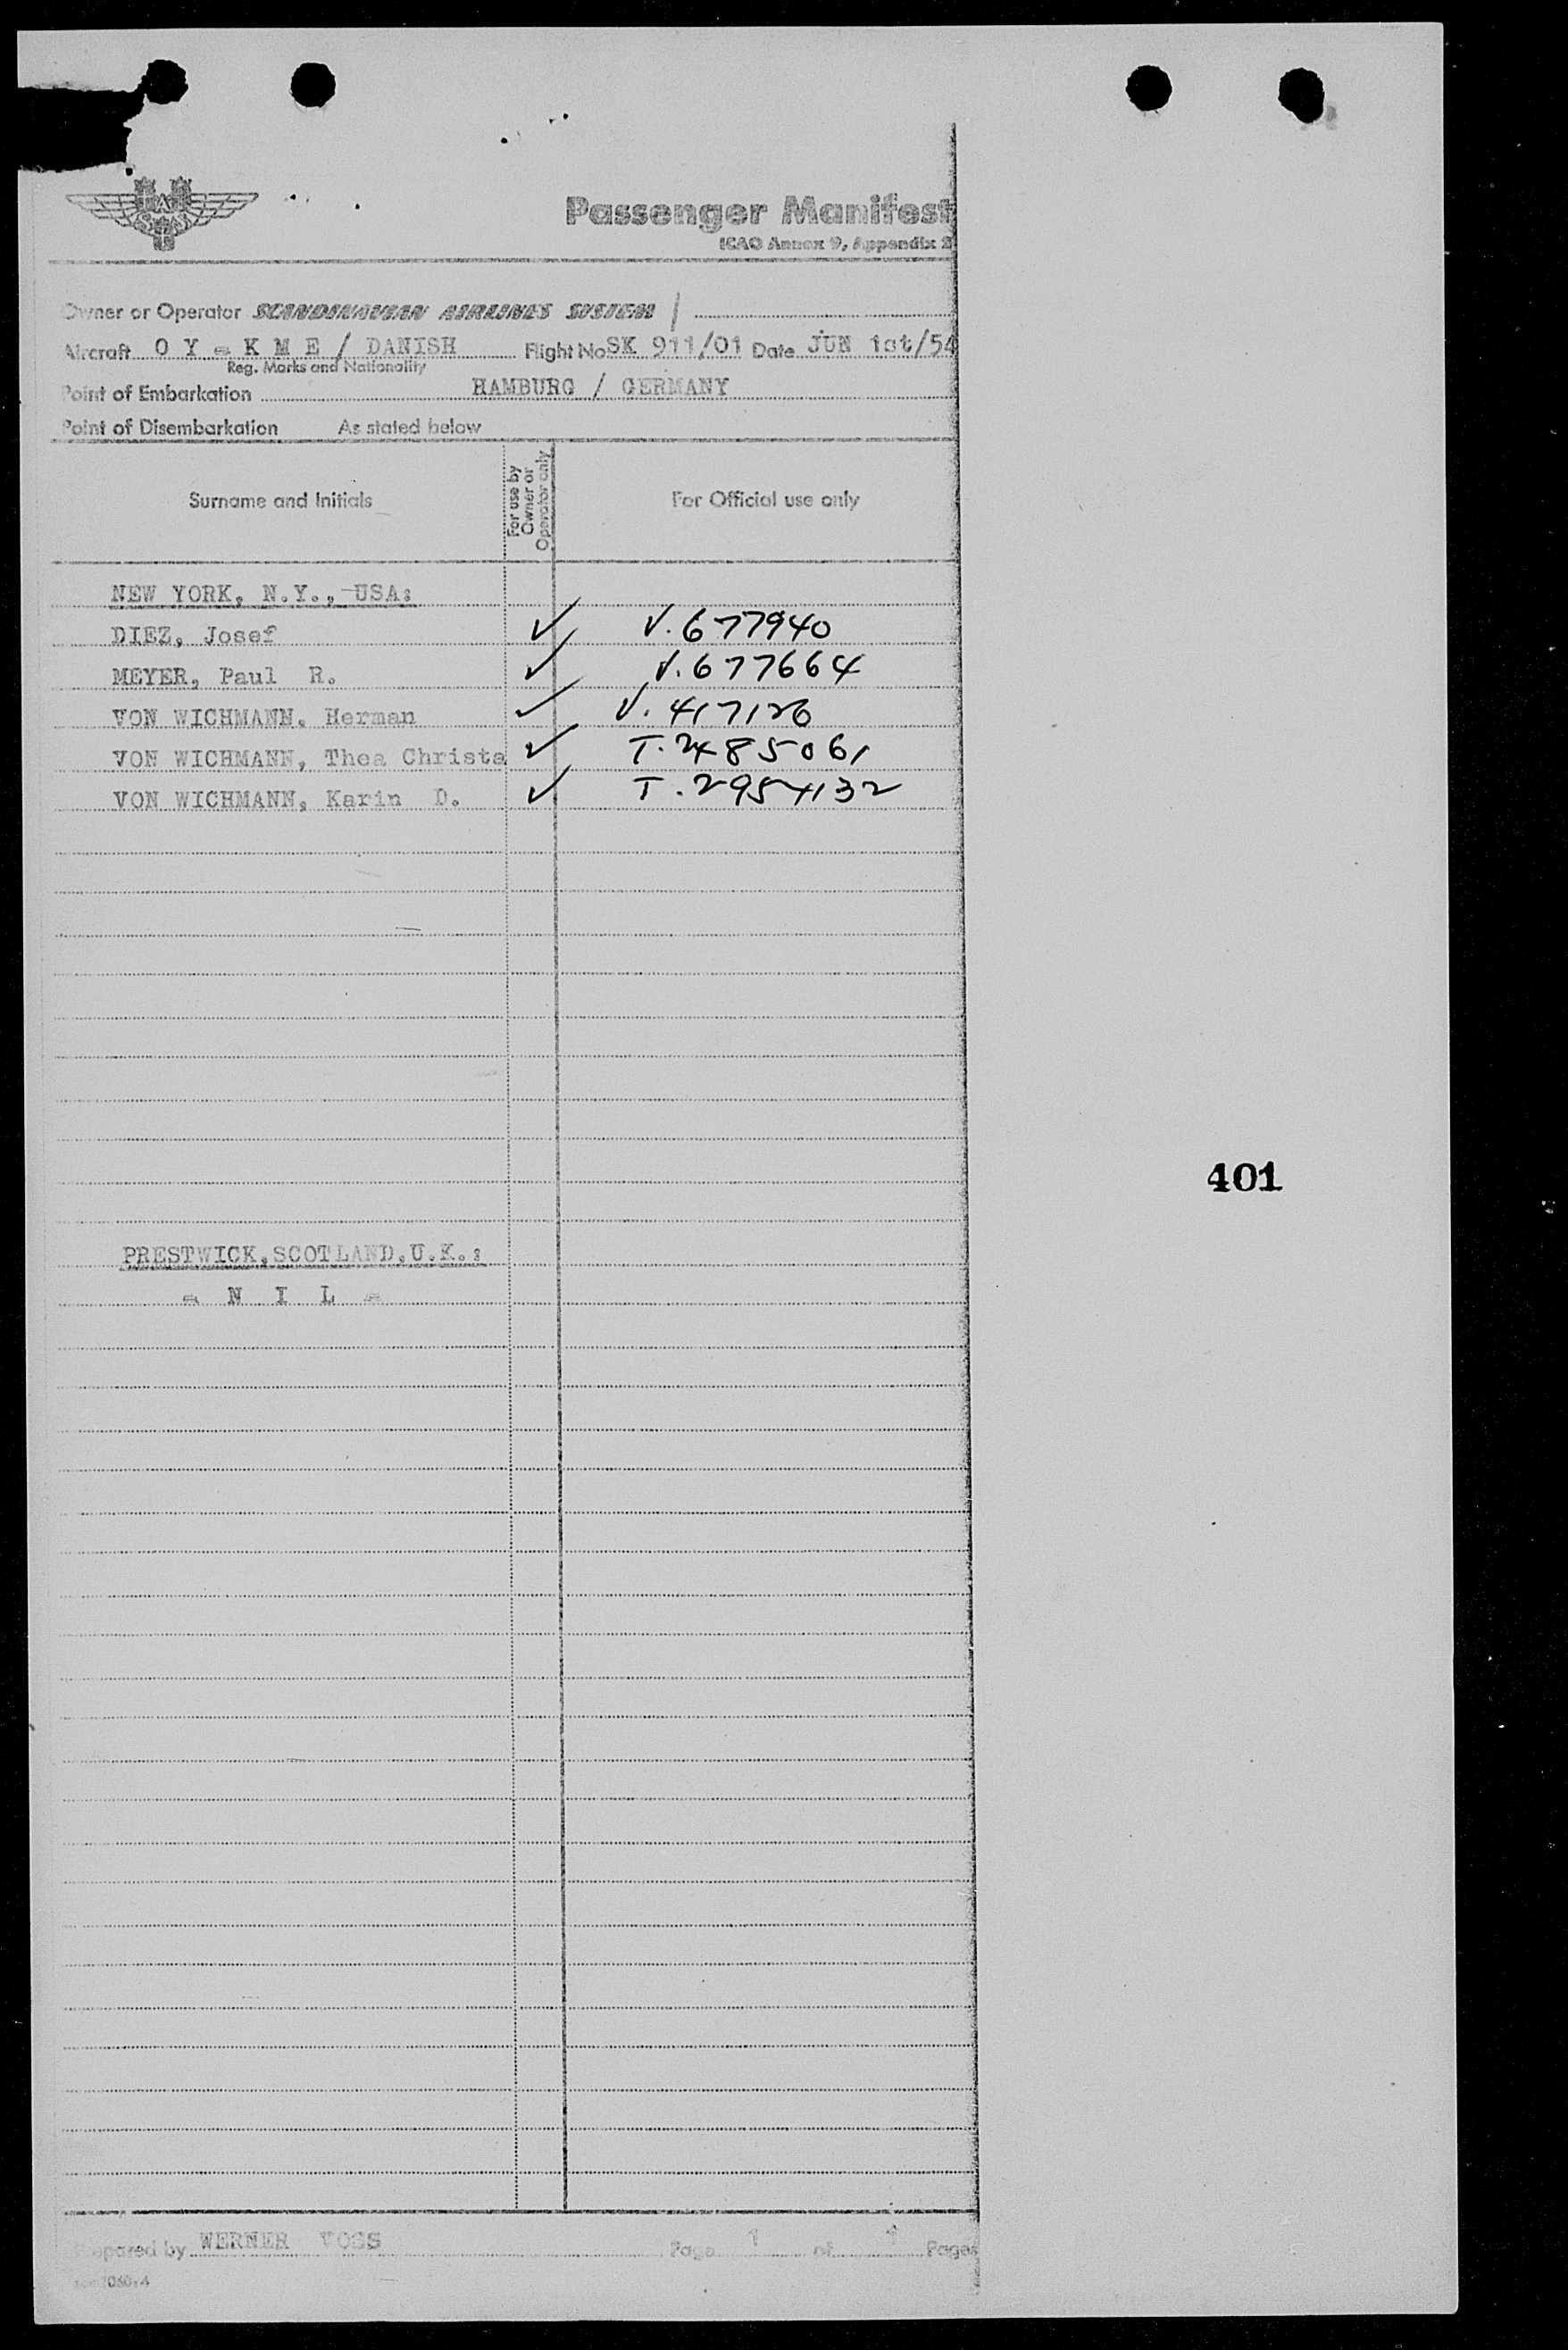 SAS
Passenger Manifest
ICAO Annex 9, Appendix 2
Owner or Operator SCANDINAVIAN AIRLINES SYSTEM /
Aircraft O Y - K M E / DANISH Flight No SK 911/01 Date JUN 1st/54
Reg. Marks and Nationality
Point of Embarkation HAMBURG / GERMANY
Point of Disembarkation As stated below
Surname and Initials For use by Owner or Operator only For Official use only
NEW YORK, N.Y., USA:
DIEZ, Josef ✓ V. 677940
MEYER, Paul R. ✓ V. 677664
VON WICHMANN, Herman ✓ V. 417126
VON WICHMANN, Thea Christa ✓ T. 2485061
VON WICHMANN, Karin D. ✓ T. 2954132
401
PRESTWICK, SCOTLAND, U.K.:
- N I L -
Prepared by WERNER VOSS Page 1 of 1 Pages